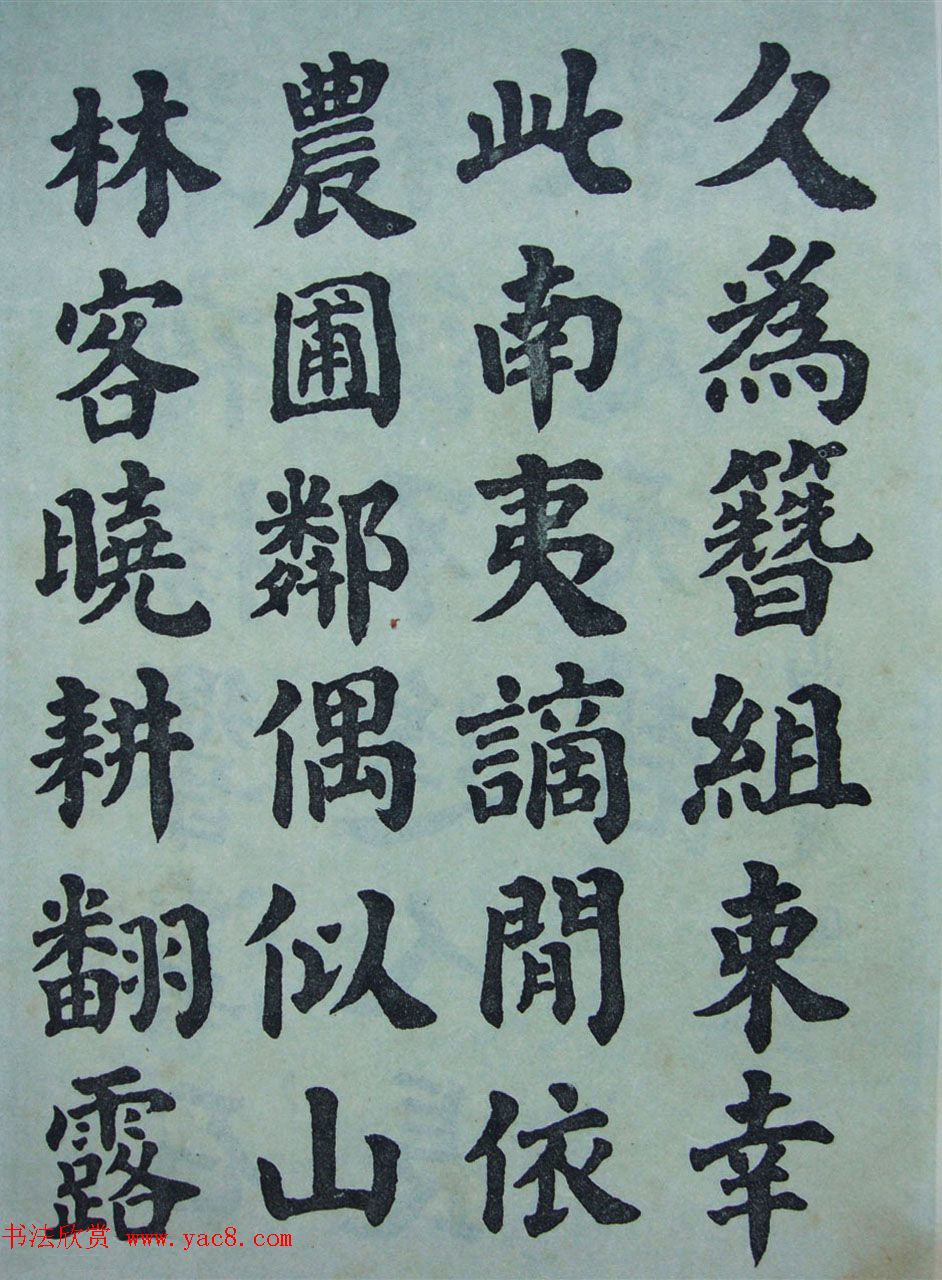 久為簪組束幸
此南夷謫閒依
農圃鄰偶似山
林客曉耕翻露
书法欣赏 www.yac8.com